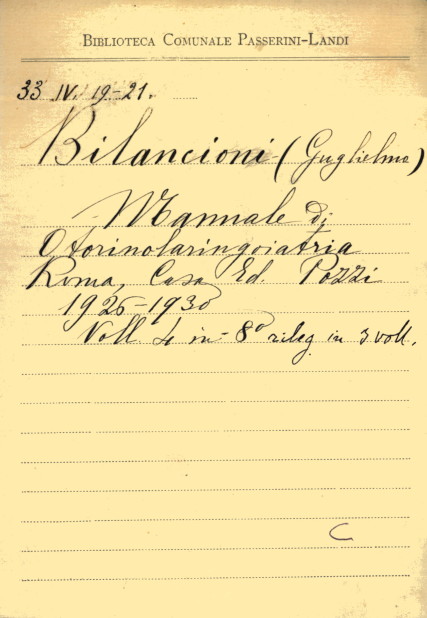 BIBLIOTECA COMUNALE PASSERINI-LANDI
33 IV. 19-21.
Bilancioni (Guglielmo)
Manuale di
Otorinolaringoiatria
Roma, Casa Ed. Pozzi
1925-1930
Voll. 4 in-8° rileg in 3 voll.
C